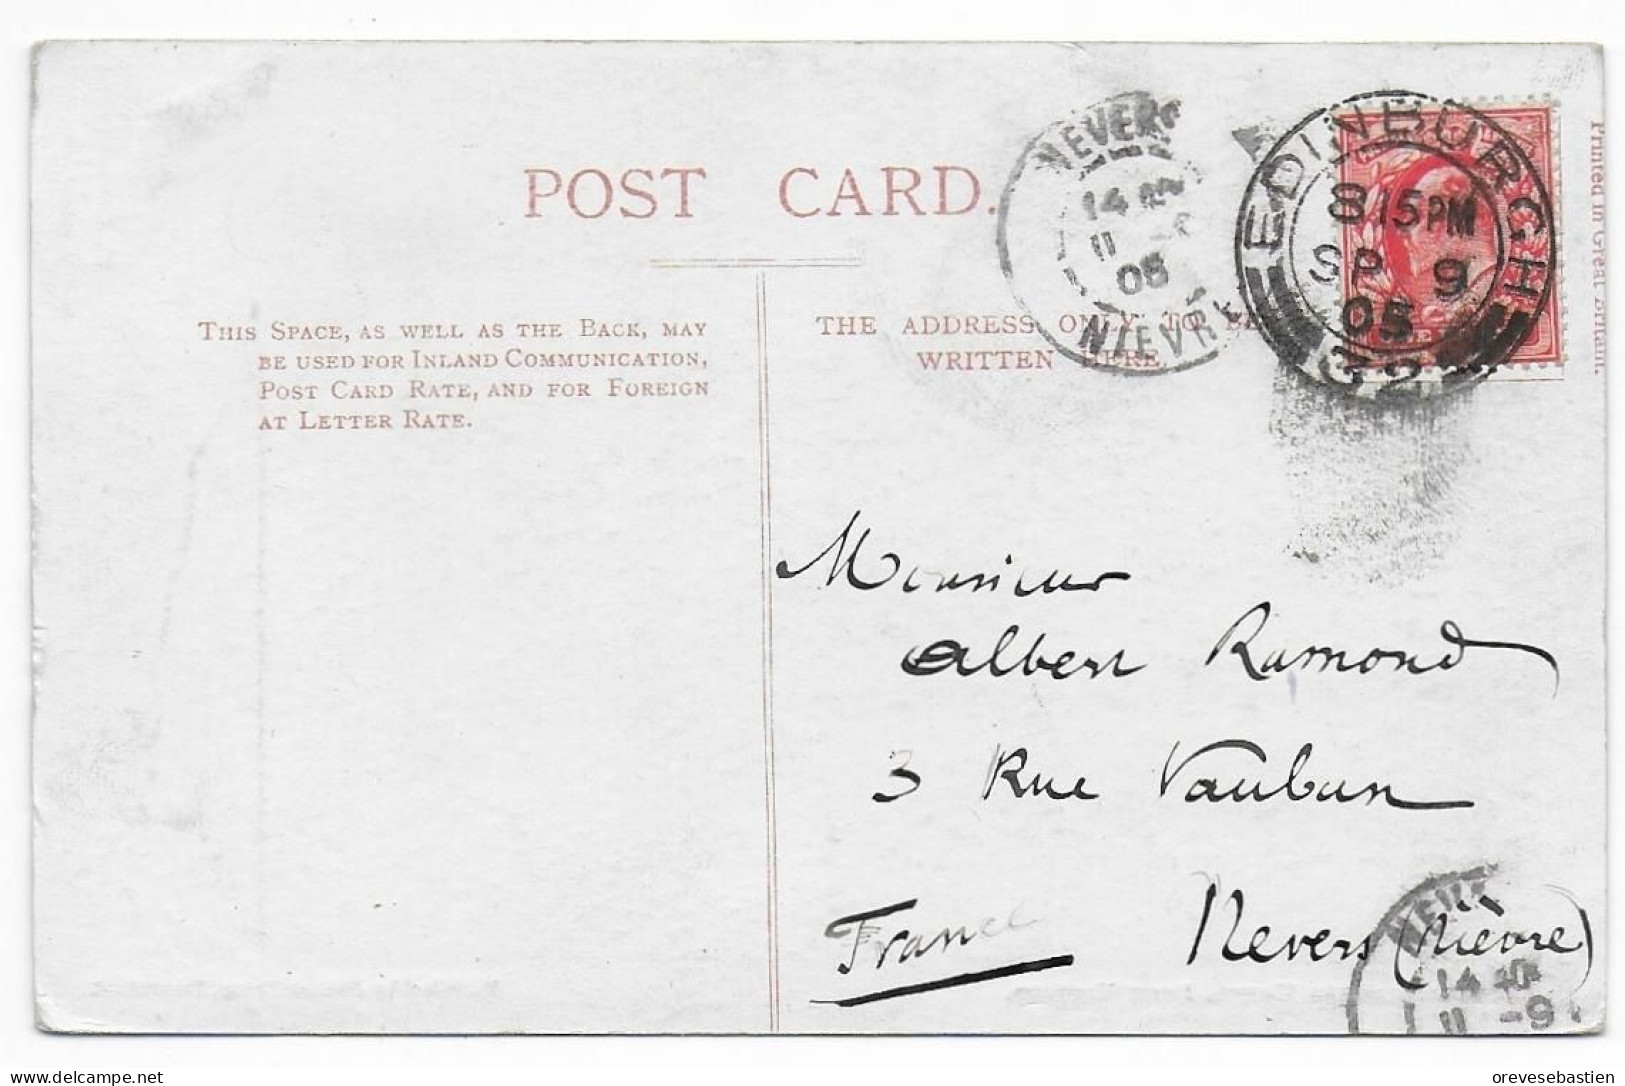 POST CARD.
THIS SPACE, AS WELL AS THE BACK, MAY
BE USED FOR INLAND COMMUNICATION,
POST CARD RATE, AND FOR FOREIGN
AT LETTER RATE.
THE ADDRESS ONLY TO BE
WRITTEN HERE
NEVERS
14
11
05
NIEVRE
EDINBURGH
8 15 PM
SP 9
05
G2
Printed in Great Britain.
Monsieur
Albert Ramond
3 Rue Vauban
Nevers (Nièvre)
France
14
11 -9
www.delcampe.net
orevesebastien